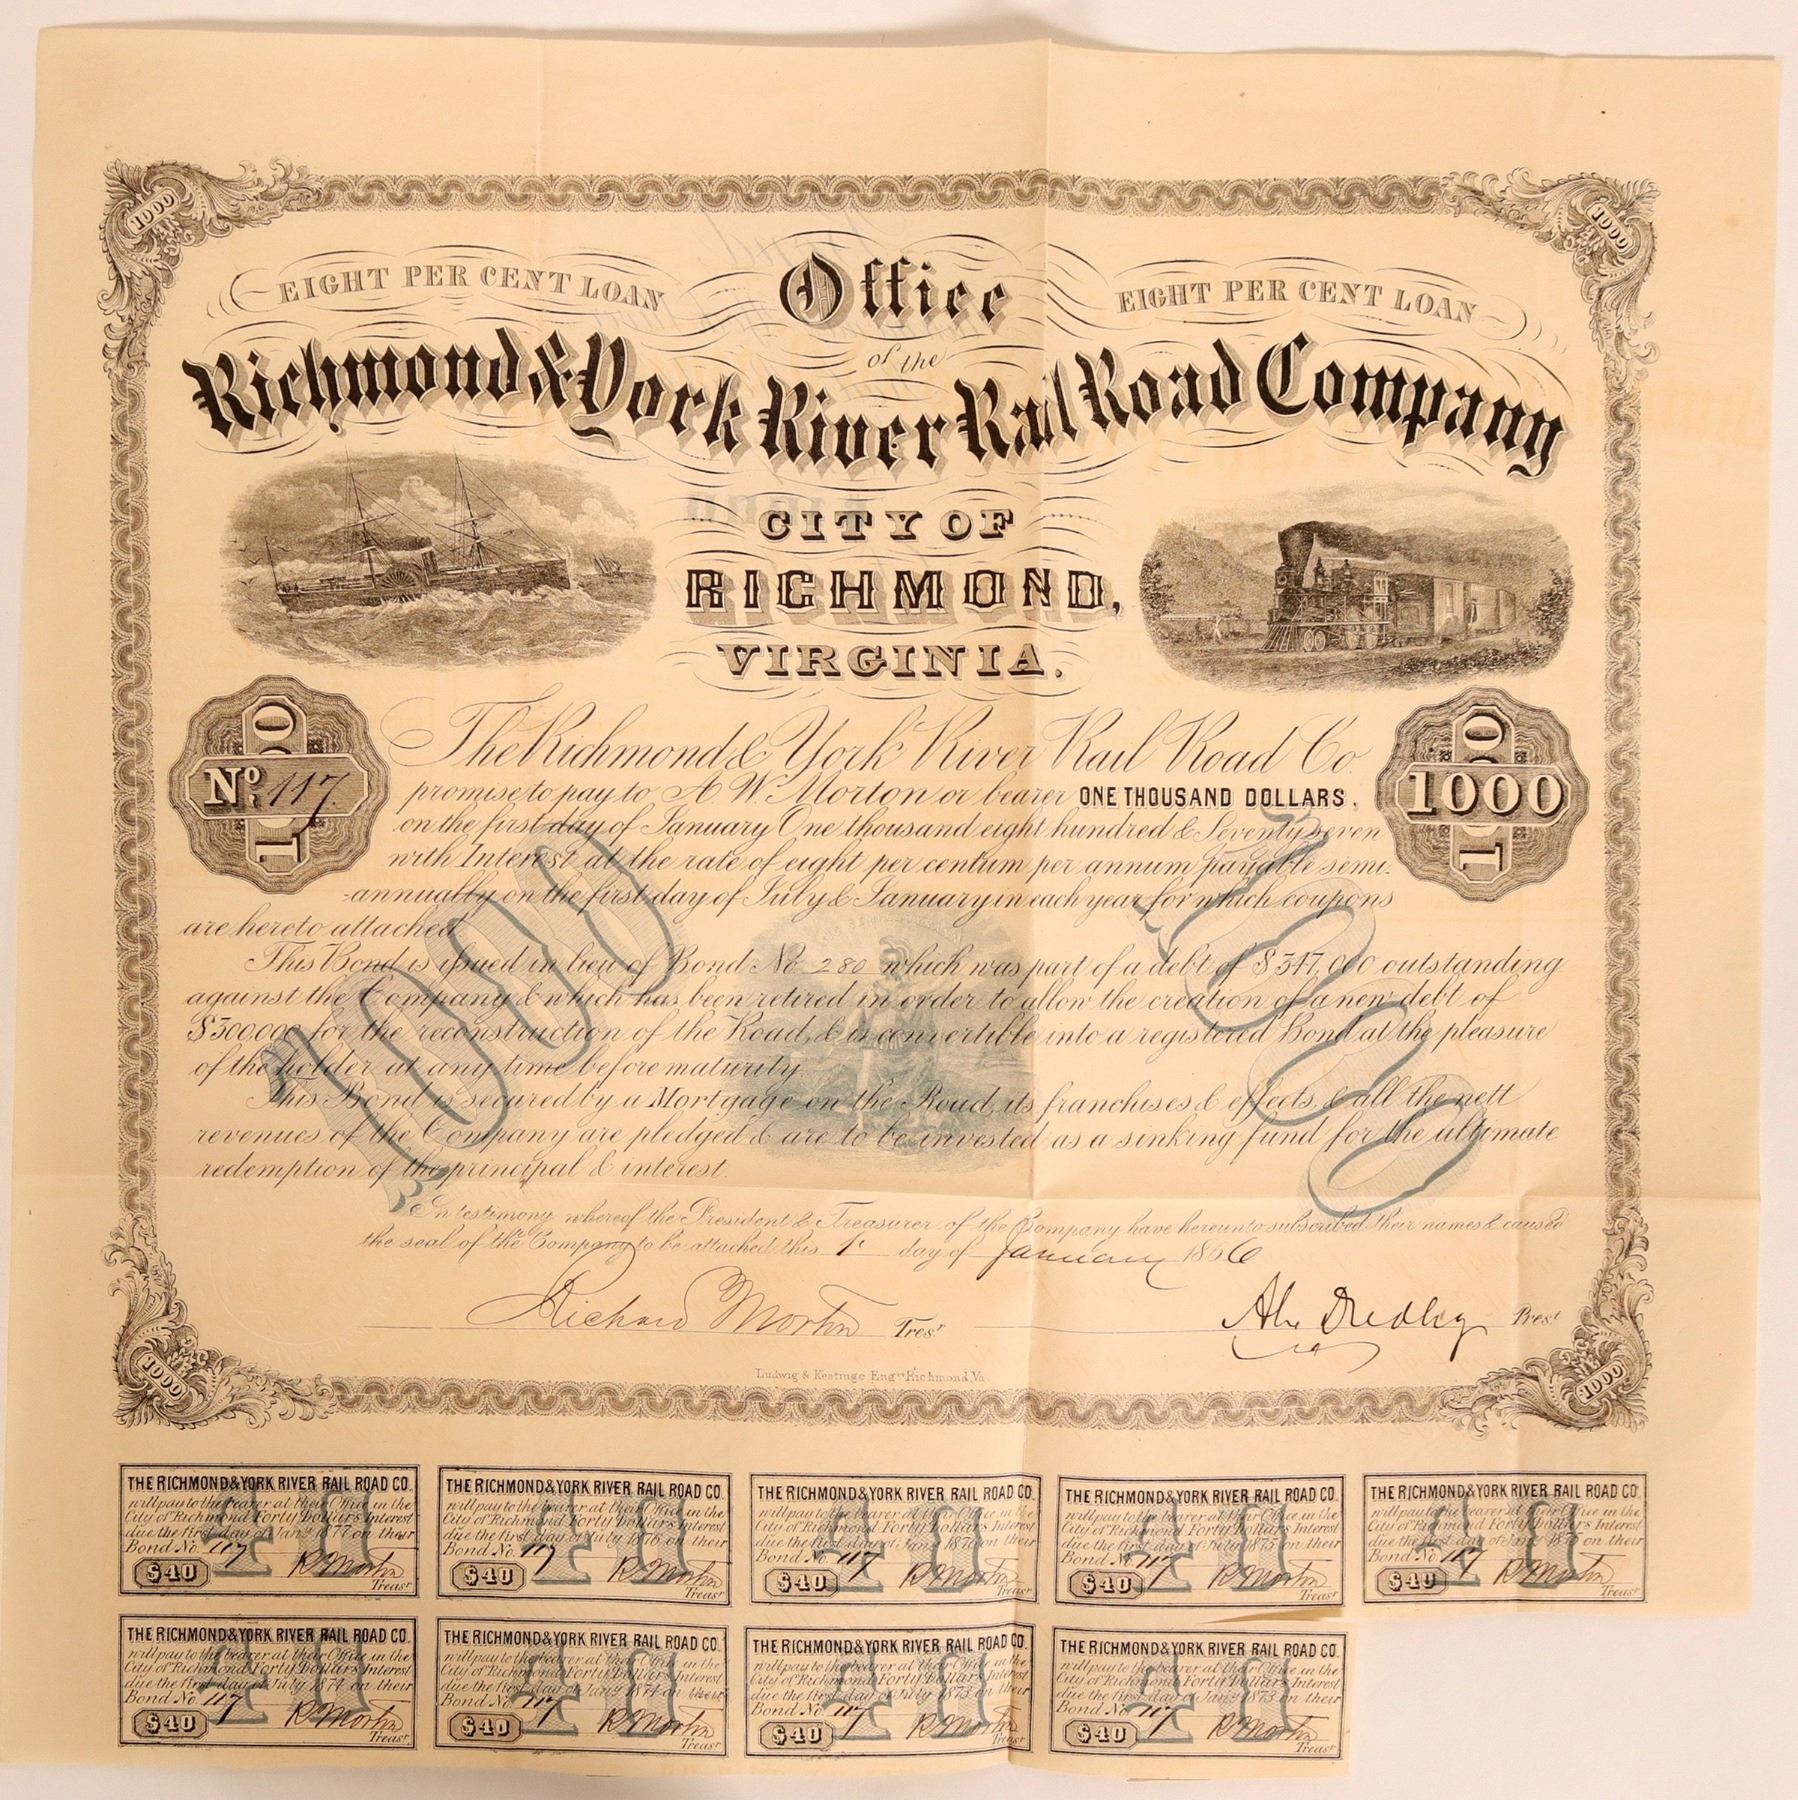 1000
1000
EIGHT PER CENT LOAN
Office
EIGHT PER CENT LOAN
of the
Richmond & York River Rail Road Company
CITY OF
RICHMOND,
VIRGINIA.
1000
No. 117.
1000
1000
The Richmond & York River Rail Road Co.
promise to pay to A. W. Morton or bearer ONE THOUSAND DOLLARS,
on the first day of January One thousand eight hundred & Seventy seven
with Interest at the rate of eight per centum per annum payable semi-
-annually on the first day of July & January in each year for which coupons
are hereto attached
This Bond is issued in lieu of Bond No. 280 which was part of a debt of $547,000 outstanding
against the Company & which has been retired in order to allow the creation of a new debt of
$300,000 for the reconstruction of the Road, & is convertible into a registered Bond at the pleasure
of the holder at any time before maturity.
This Bond is secured by a Mortgage on the Road, its franchises & effects, & all the nett
revenues of the Company are pledged & are to be invested as a sinking fund for the ultimate
redemption of the principal & interest.
1000
1000
In testimony whereof the President & Treasurer of the Company have hereunto subscribed their names & caused
the seal of the Company to be attached this 1st day of January 1866
Richard Morton Tresr
Alx Dudley Prest
Ludwig & Kestinge Engrs Richmond, Va
1000
1000
THE RICHMOND & YORK RIVER RAIL ROAD CO.
will pay to the bearer at their Office in the
City of Richmond Forty Dollars Interest
due the first day of Jany 1877 on their
Bond No. 117
$40
R Morton
Treasr
40
THE RICHMOND & YORK RIVER RAIL ROAD CO.
will pay to the bearer at their Office in the
City of Richmond Forty Dollars Interest
due the first day of July 1876 on their
Bond No. 117
$40
R Morton
Treasr
40
THE RICHMOND & YORK RIVER RAIL ROAD CO.
will pay to the bearer at their Office in the
City of Richmond Forty Dollars Interest
due the first day of Jany 1876 on their
Bond No. 117
$40
R Morton
Treasr
40
THE RICHMOND & YORK RIVER RAIL ROAD CO.
will pay to the bearer at their Office in the
City of Richmond Forty Dollars Interest
due the first day of July 1875 on their
Bond No. 117
$40
R Morton
Treasr
40
THE RICHMOND & YORK RIVER RAIL ROAD CO.
will pay to the bearer at their Office in the
City of Richmond Forty Dollars Interest
due the first day of Jany 1875 on their
Bond No. 117
$40
R Morton
Treasr
40
THE RICHMOND & YORK RIVER RAIL ROAD CO.
will pay to the bearer at their Office in the
City of Richmond Forty Dollars Interest
due the first day of July 1874 on their
Bond No. 117
$40
R Morton
Treasr
40
THE RICHMOND & YORK RIVER RAIL ROAD CO.
will pay to the bearer at their Office in the
City of Richmond Forty Dollars Interest
due the first day of Jany 1874 on their
Bond No. 117
$40
R Morton
Treasr
40
THE RICHMOND & YORK RIVER RAIL ROAD CO.
will pay to the bearer at their Office in the
City of Richmond Forty Dollars Interest
due the first day of July 1873 on their
Bond No. 117
$40
R Morton
Treasr
40
THE RICHMOND & YORK RIVER RAIL ROAD CO.
will pay to the bearer at their Office in the
City of Richmond Forty Dollars Interest
due the first day of Jany 1873 on their
Bond No. 117
$40
R Morton
Treasr
40